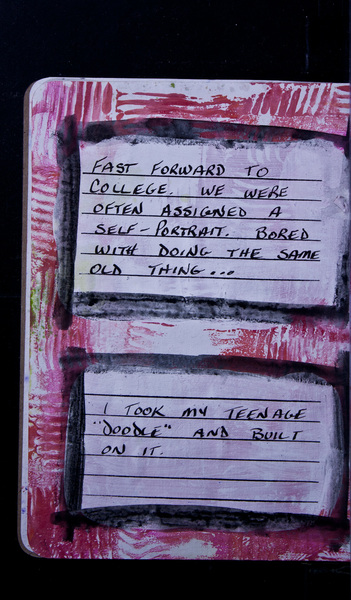 FAST FORWARD TO
COLLEGE. WE WERE
OFTEN ASSIGNED A
SELF-PORTRAIT. BORED
WITH DOING THE SAME
OLD THING...
I TOOK MY TEENAGE
"DOODLE" AND BUILT
ON IT.